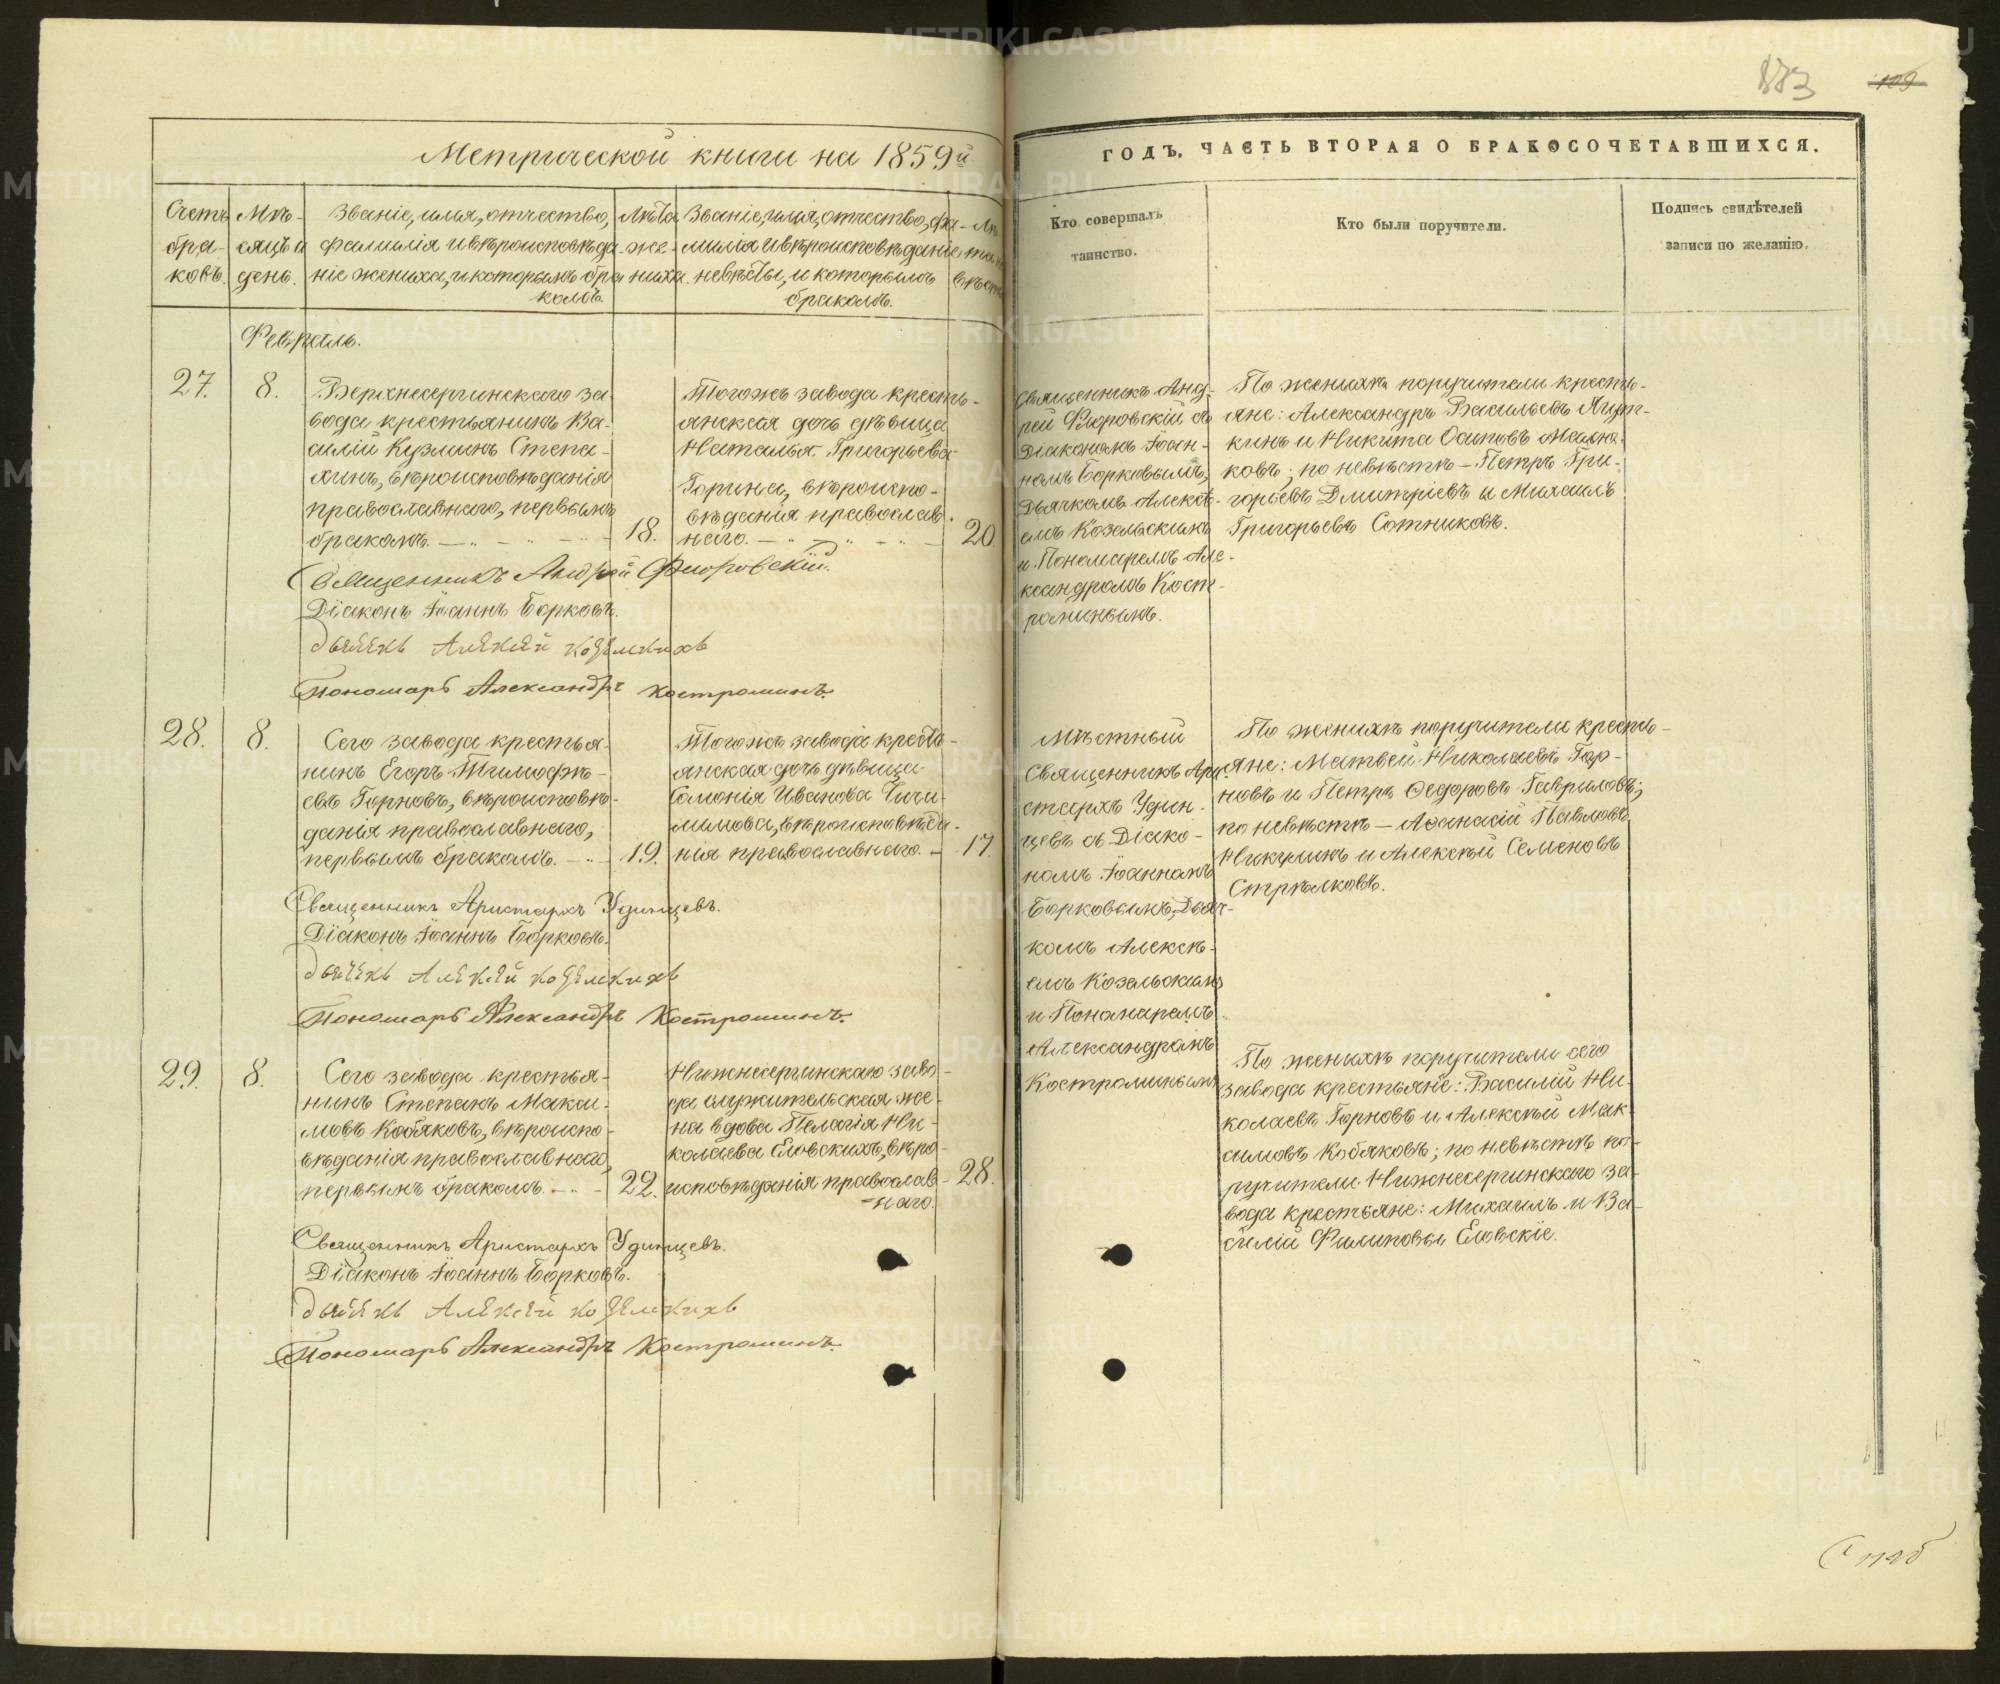 Метрической книги на 1859й
ГОДЪ, ЧАСТЬ ВТОРАЯ О БРАКОСОЧЕТАВШИХСЯ.
183
109
Счетъ
бра-
ковъ.
Мѣ-
сяцъ и
день.
Званіе, имя, отчество,
фамилія и вѣроисповѣда-
ніе жениха, и которымъ бра
комъ.
Лѣта
же-
ниха.
Званіе, имя, отчество, фа-
милія и вѣроисповѣданіе
невѣсты, и которымъ
бракомъ.
Кто совершалъ
таинство.
Кто были поручители.
Подпись свидѣтелей
записи по желанію.
Февраль.
27.
8.
Верхнесергинскаго за-
вода крестьянинъ Ва-
силій Кузминъ Степа-
хинъ, вѣроисповѣданія
православнаго, первымъ
бракомъ.
18.
Тогожъ завода кресть-
янская дочь дѣвица
Наталья Григорьева
Горина, вѣроиспо-
вѣданія православ-
наго.
20
Священникъ Анд-
рей Флоровскій съ
Діакономъ Іоан-
номъ Борковымъ,
Дьячкомъ Алексѣ-
емъ Козельскимъ
и Пономаремъ Але-
ксандромъ Кост-
роминымъ.
По женихѣ поручители кресть-
яне: Александръ Васильевъ
и Никита Осиповъ
ковъ; по невѣстѣ – Петръ Гри-
горьевъ Дмитріевъ и Михаилъ
Григорьевъ Сотниковъ.
Священникъ Андрей Флоровскій.
Діаконъ Іоаннъ Борковъ.
Дьячекъ Алексей Козелскихъ
Пономарь Александръ Костроминъ.
28.
8.
Сего завода крестья-
нинъ Егоръ Тимофѣ-
евъ Горновъ, вѣроисповѣ-
данія православнаго,
первымъ бракомъ.
19.
Тогожъ завода кресть-
янская дочь дѣвица
Соломонія Иванова Чичи-
лимова, вѣроисповѣда-
нія православнаго.
17.
Мѣстный
Священникъ Ари-
стархъ Удин-
цевъ съ Діако-
номъ Іоанномъ
Борковымъ, Дьяч-
комъ Алексѣ-
емъ Козельскимъ
и Пономаремъ
Александромъ
Костроминымъ
По женихѣ поручители кресть-
яне: Матвей Николаевъ Гор-
новъ и Петръ Ѳедоровъ Гавриловъ;
по невѣстѣ – Аѳанасій Павловъ
Никулинъ и Алексѣй Семеновъ
Стрѣлковъ.
Священникъ Аристархъ Удинцевъ.
Діаконъ Іоаннъ Борковъ.
Дьячекъ Алексей Козелскихъ
Пономарь Александръ Костроминъ.
29.
8.
Сего завода крестья-
нинъ Степанъ Макси-
мовъ Кобяковъ, вѣроиспо-
вѣданія православнаго,
первымъ бракомъ.
22.
Нижнесергинскаго заво-
да служительская же-
на вдова Пелагія Ни-
колаева Еловскихъ, вѣро-
исповѣданія православ-
=наго.
28.
По женихѣ поручители сего
завода крестьяне: Василій Ни-
колаевъ Горновъ и Алексѣй Мак-
симовъ Кобяковъ; по невѣстѣ по-
ручители Нижнесергинскаго за-
вода крестьяне: Михаилъ и Ва-
силій Филиповы Еловскіе.
Священникъ Аристархъ Удинцевъ.
Діаконъ Іоаннъ Борковъ.
Дьячекъ Алексей Козелскихъ
Пономарь Александръ Костроминъ.
METRIKI.GASO-URAL.RU